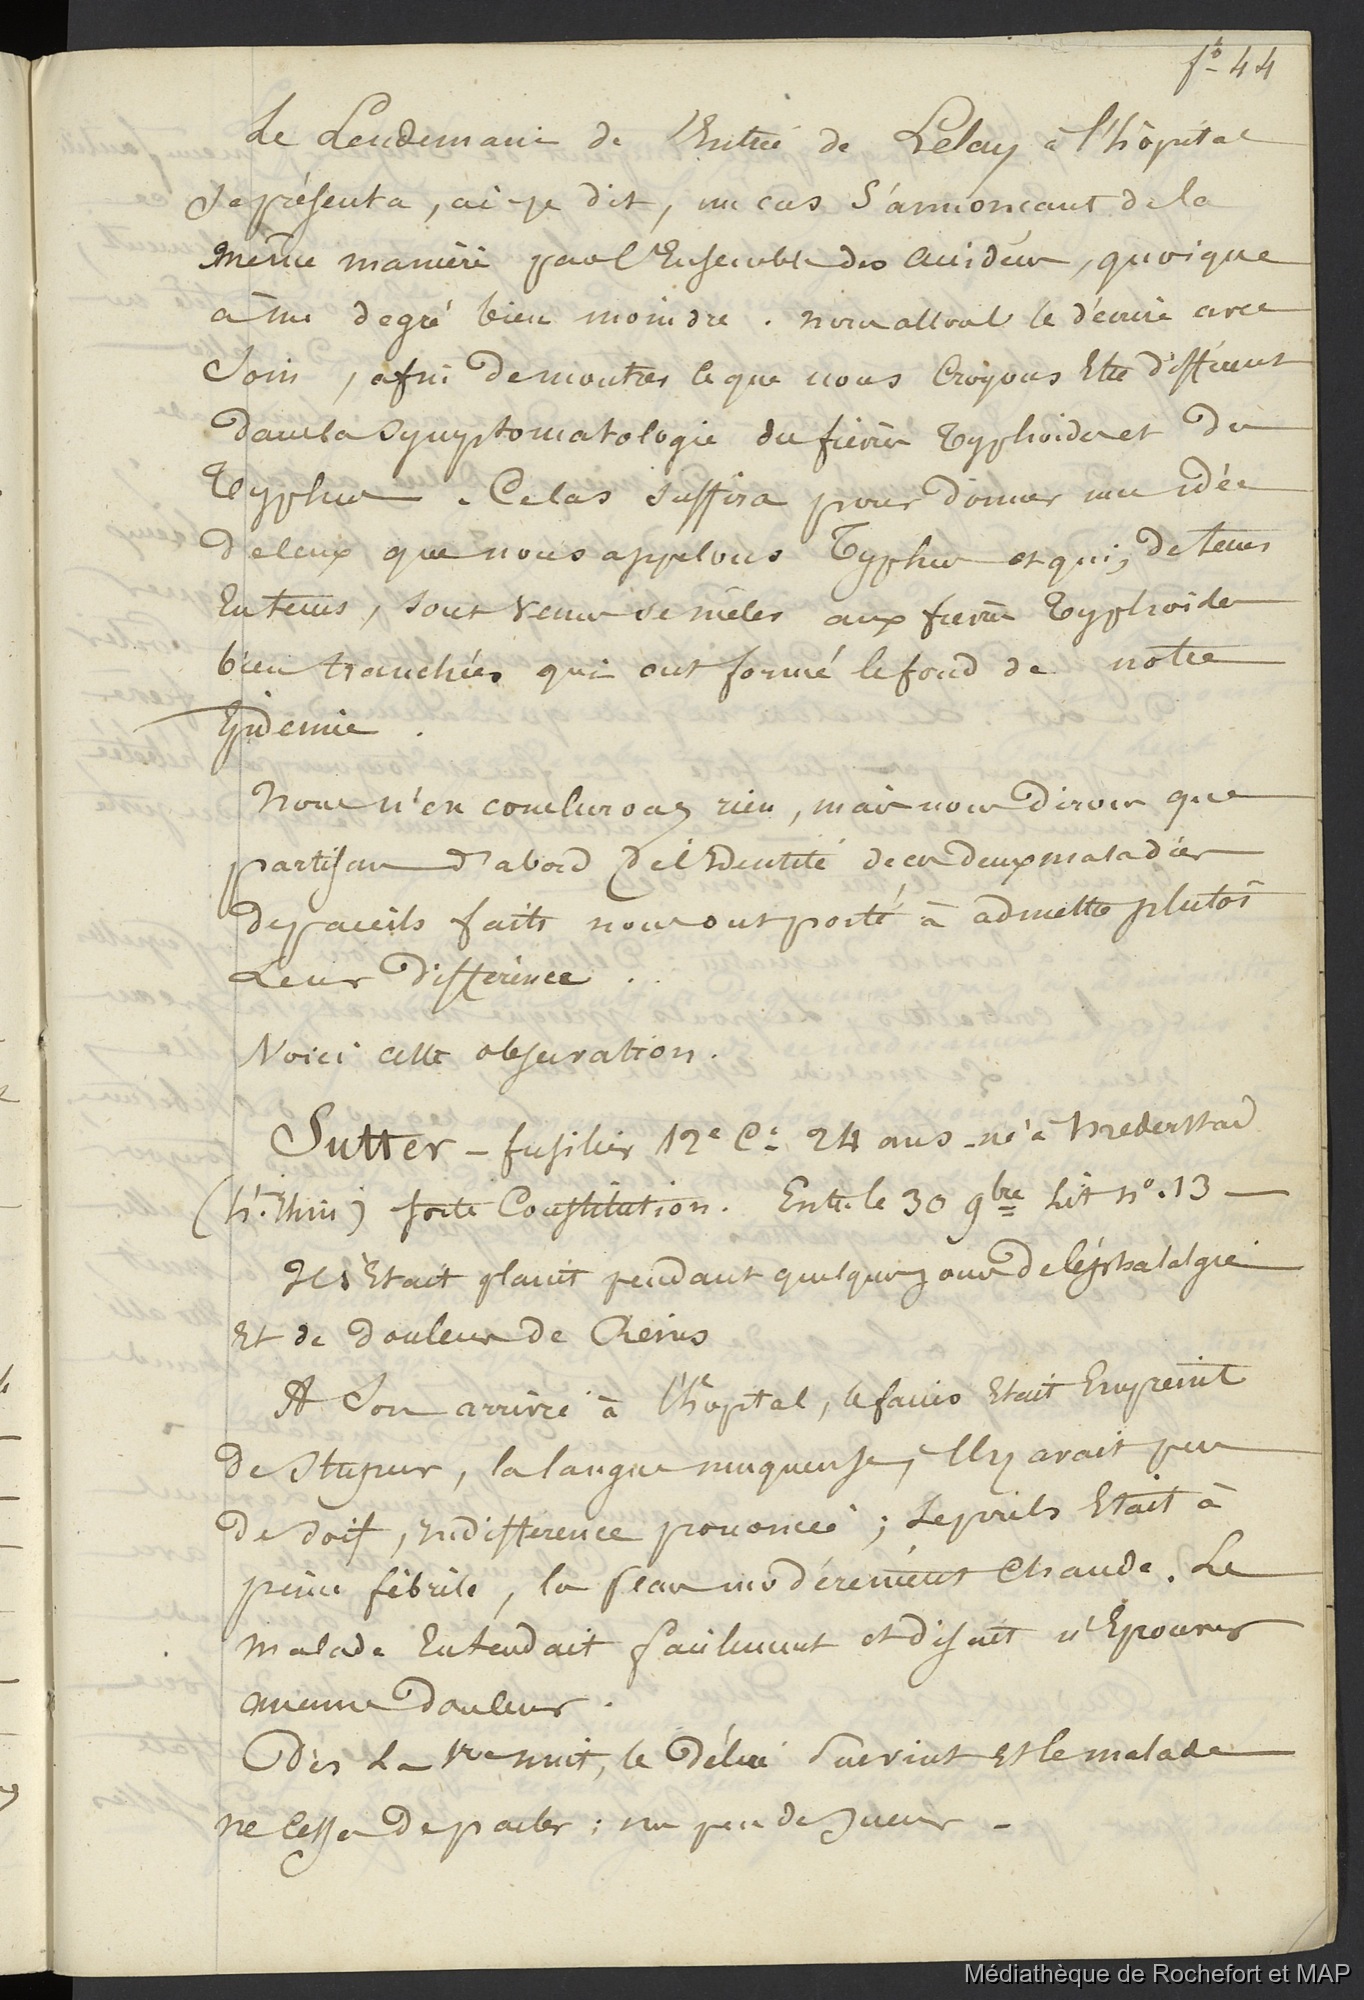 f° 44
Le Lendemain de l'Entrée de Lelay à l'hôpital
se présenta, ai-je dit, un cas s'annoncant de la
même manière par l'Ensemble des accidens, quoique
à un degré bien moindre. nous allons le décrire avec
soin, afin de montrer ce que nous Croyons Etre différent
dans la symptomatologie du fièvre Typhoïde et du
Typhus. Ce cas suffira pour donner une idée
de ceux que nous appelons Typhus et qui, de tems
En tems, sont venus se mêler aux fièvres typhoïdes
bien tranchées qui ont formé le fond de notre
Epidemie.
Nous n'en conclurons rien, mais nous dirons que
partisans d'abord de l'Identité de ces deux maladies
de pareils faits nous ont porté à admettre plutôt
Leur Différence.
Voici cette observation.
Sutter - fusilier 12e Cie 24 ans - né à hiederstad
(ht. Rhin) forte Constitution. Entré le 30 9bre Lit n°. 13
Il s'Etait plaint pendant quelques jours de Céphalalgie
Et de douleurs de Reins
A son arrivée à l'hôpital, le faciès Etait Empreint
de Stupeur, la langue muqueuse, Il y avait peu
de soif, indifférence prononcée; Le pouls Etait à
peine fébrile, la peau modérément Chaude. Le
malade Entendait facilement et disait n'Eprouver
aucune douleur.
Dès La 1re nuit, le Délire survint et le malade
ne Cessa de parler; un peu de sueur -
Médiathèque de Rochefort et MAP